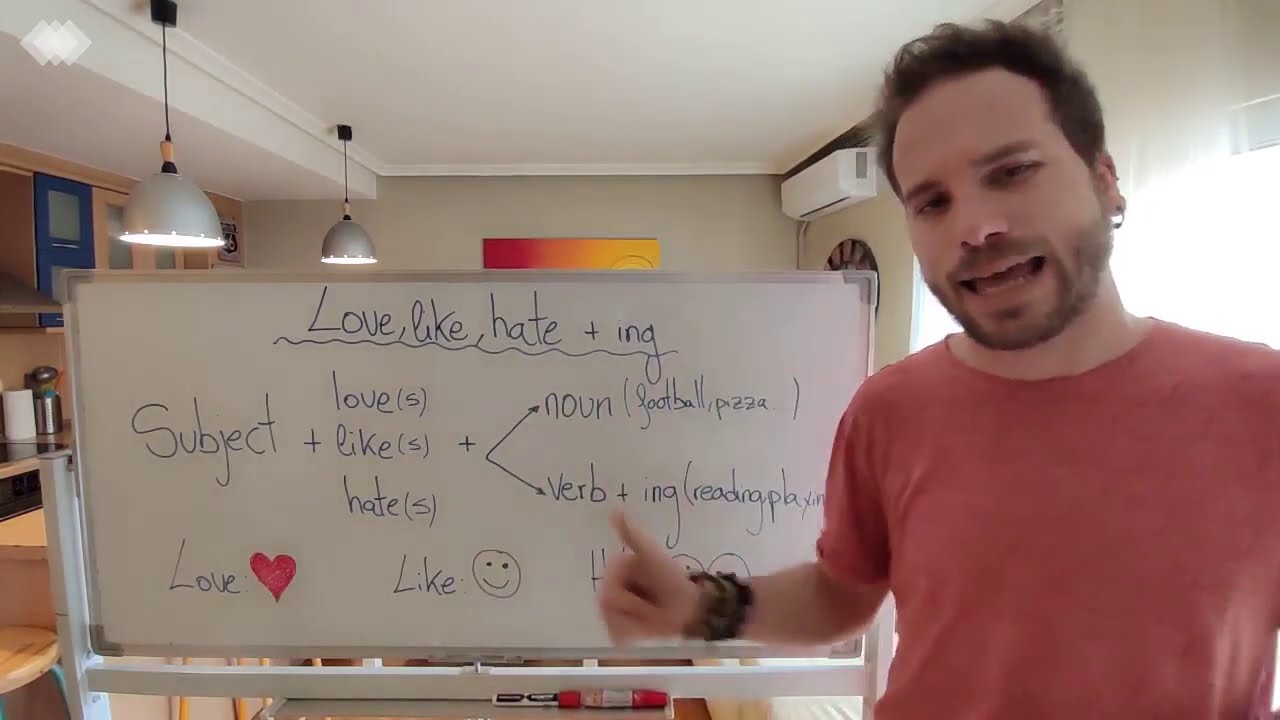 Love, like, hate + ing
love(s)
noun (football, pizza..)
Subject + like(s) +
verb + ing (reading, playin
hate(s)
Love:
Like: